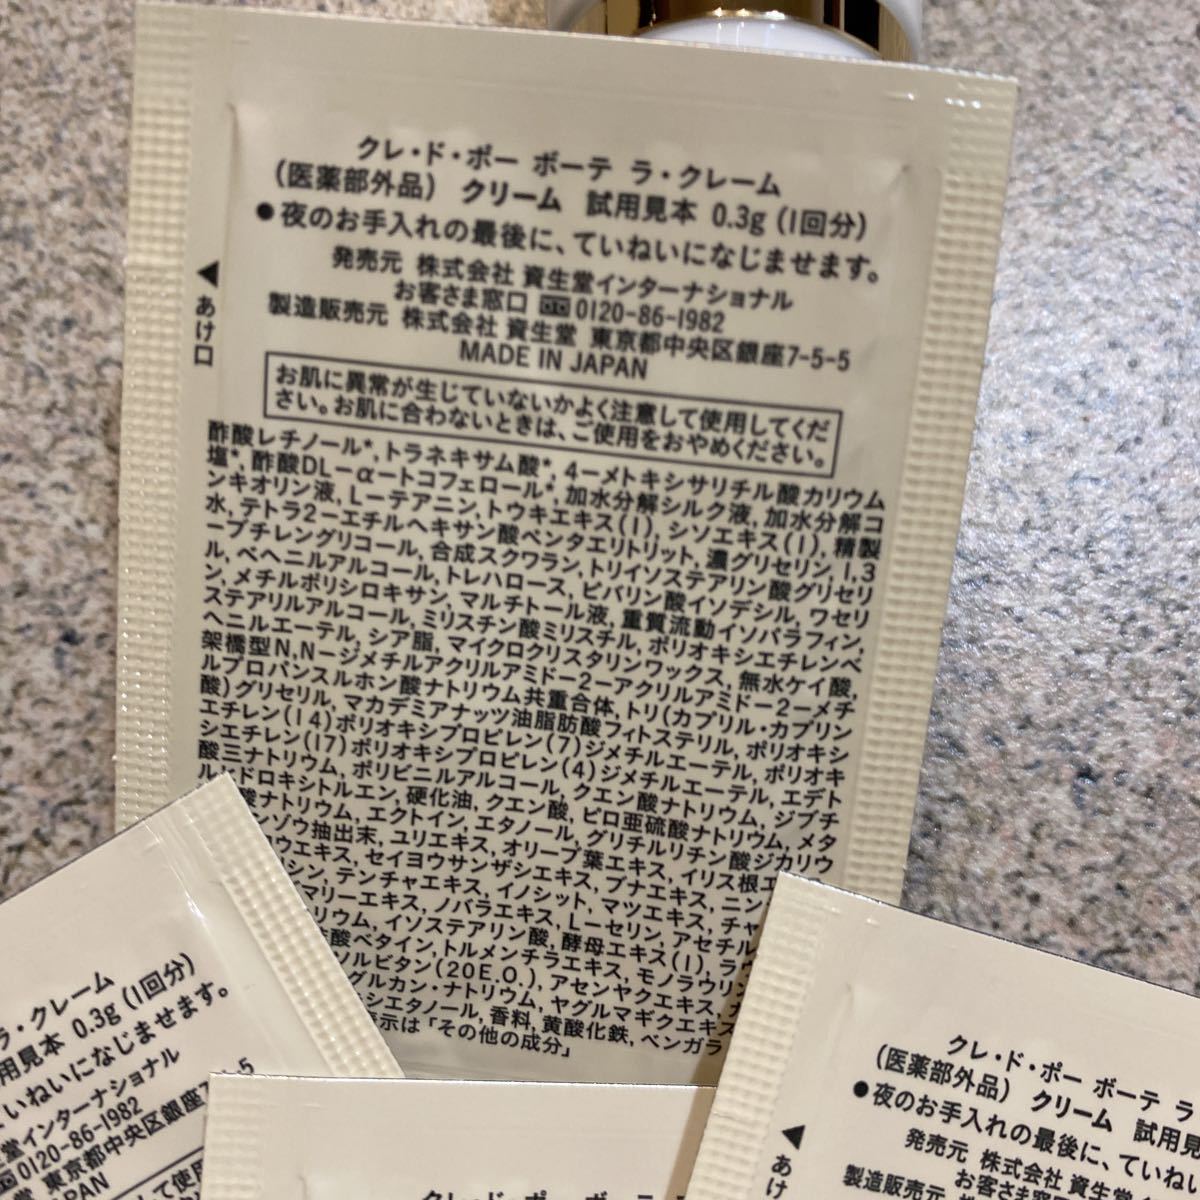 クレ・ド・ポー ボーテ ラ・クレーム
(医薬部外品) クリーム 試用見本 0.3g (1回分)
●夜のお手入れの最後に、ていねいになじませます。
発売元 株式会社 資生堂インターナショナル
お客さま窓口 0120-86-1982
製造販売元 株式会社 資生堂 東京都中央区銀座7-5-5
MADE IN JAPAN
◀あけ口
お肌に異常が生じていないかよく注意して使用してくだ
さい。お肌に合わないときは、ご使用をおやめください。
酢酸レチノール*, トラネキサム酸*, 4ーメトキシサリチル酸カリウム
塩*, 酢酸DLーαートコフェロール*, 加水分解シルク液, 加水分解コ
ンキオリン液, Lーテアニン, トウキエキス(1), シソエキス(1), 精製
水, テトラ2ーエチルヘキサン酸ペンタエリトリット, 濃グリセリン, 1,3
ーブチレングリコール, 合成スクワラン, トリイソステアリン酸グリセリ
ル, ベヘニルアルコール, トレハロース, ピバリン酸イソデシル, ワセリ
ン, メチルポリシロキサン, マルチトール液, 重質流動イソパラフィン,
ステアリルアルコール, ミリスチン酸ミリスチル, ポリオキシエチレンベ
ヘニルエーテル, シア脂, マイクロクリスタリンワックス, 無水ケイ酸,
架橋型N,Nージメチルアクリルアミドー2ーアクリルアミドー2ーメチ
ルプロパンスルホン酸ナトリウム共重合体, トリ(カプリル・カプリン
酸)グリセリル, マカデミアナッツ油脂肪酸フィトステリル, ポリオキシ
エチレン(14)ポリオキシプロピレン(7)ジメチルエーテル, ポリオキ
シエチレン(17)ポリオキシプロピレン(4)ジメチルエーテル, エデト
酸三ナトリウム, ポリビニルアルコール, クエン酸ナトリウム, ジブチ
ルヒドロキシトルエン, 硬化油, クエン酸, ピロ亜硫酸ナトリウム, メタ
酸ナトリウム, エクトイン, エタノール, グリチルリチン酸ジカリウ
ンゾウ抽出末, ユリエキス, オリーブ葉エキス, イリス根エ
ウエキス, セイヨウサンザシエキス, ブナエキス, ニン
シン, テンチャエキス, イノシット, マツエキス, チャ
マリーエキス, ノバラエキス, Lーセリン, アセチル
リウム, イソステアリン酸, 酵母エキス(1), ラウ
酸ベタイン, トルメンチラエキス, モノラウリン
ソルビタン(20E.O.), アセンヤクエキス,
グルカン・ナトリウム, ヤグルマギクエキス
シエタノール, 香料, 黄酸化鉄, ベンガラ
表示は「その他の成分」
ラ・クレーム
用見本 0.3g (1回分)
ていねいになじませます。
堂インターナショナル
0120-86-1982
堂 東京都中央区銀座7-5-5
JAPAN
して使用
クレ・ド・ポー ボーテ ラ
(医薬部外品) クリーム 試用見
●夜のお手入れの最後に、ていね
発売元 株式会社 資生
お客さま
製造販売元 株式
◀あけ
クレ・ド・ポー ボーテ